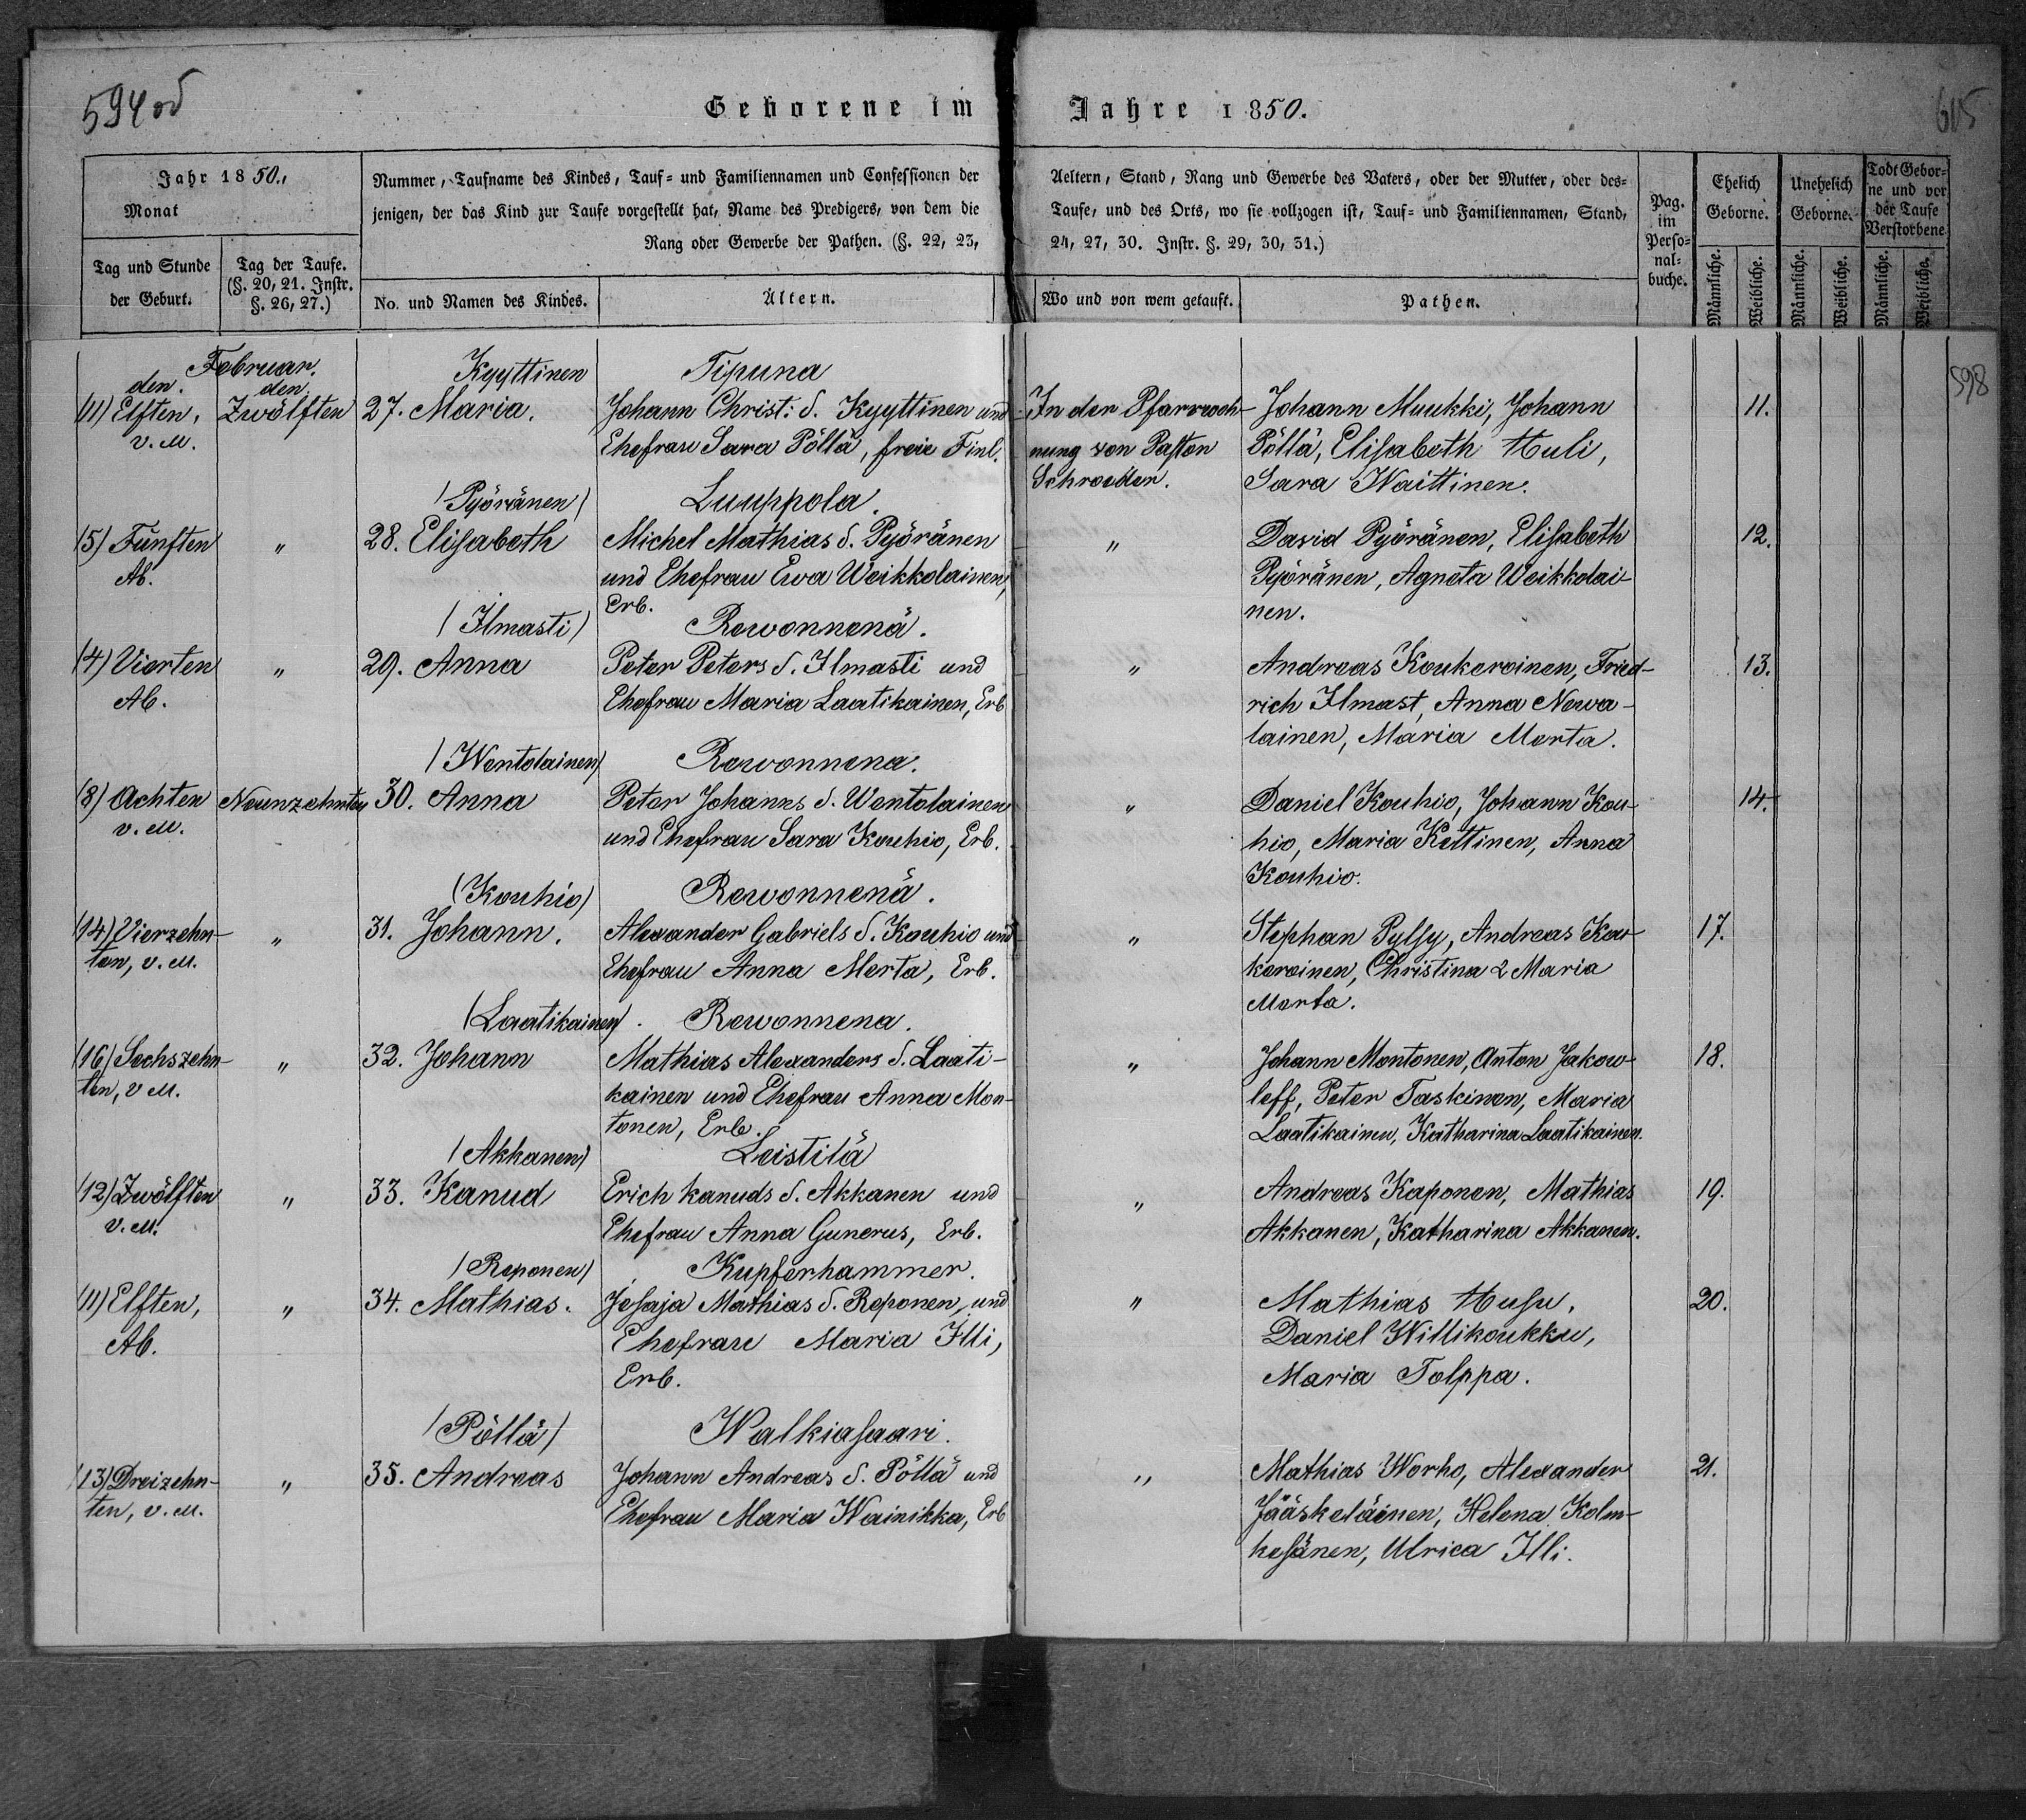 594 od
Geborene im Jahre 1850.
615
Jahr 1850.
Monat
Tag und Stunde der Geburt.
Tag der Taufe. (§. 20, 21. Instr. §. 26, 27.)
Nummer, Taufname des Kindes, Tauf- und Familiennamen und Confessionen der
jenigen, der das Kind zur Taufe vorgestellt hat, Name des Predigers, von dem die
Rang oder Gewerbe der Pathen. (§. 22, 23,
No. und Namen des Kindes.
Ältern.
Aeltern, Stand, Rang und Gewerbe des Vaters, oder der Mutter, oder des-
Taufe, und des Orts, wo sie vollzogen ist, Tauf- und Familiennamen, Stand,
24, 27, 30. Instr. §. 29, 30, 31.)
Wo und von wem getauft.
Pathen.
Pag. im Perso-nal-buche.
Ehelich Geborne.
Unehelich Geborne.
Todt Gebor-ne und vor der Taufe Verstorbene
Männliche. Weibliche. Männliche. Weibliche. Männliche. Weibliche.
598
Februar.
den. den.
Kyyttinen
Tipuna
(11) Elften, v. M.
Zwölften
27. Maria.
Johann Christ: S. Kyyttinen und
Ehefrau Sara Pöllä, freie Finl.
In der Pfarrwoh-
nung von Pastor
Schroeder.
Johann Muukki, Johann
Pöllä, Elisabeth Huli,
Sara Waittinen.
11.
(Pyöränen)
Luuppola.
(5) Fünften Ab.
"
28. Elisabeth
Michel Mathias S. Pyöränen
und Ehefrau Ewa Weikkolainen,
Erb.
"
David Pyöränen, Elisabeth
Pyöränen, Agneta Weikkolai-
nen.
12.
(Ilmasti)
Rewonnenä.
(4) Vierten Ab.
"
29. Anna
Peter Peters S. Ilmasti und
Ehefrau Maria Laatikainen, Erb
"
Andreas Koukeroinen, Fried-
rich Ilmast, Anna Newa-
lainen, Maria Merta.
13.
(Wentolainen)
Rewonnena.
(8) Achten v. M.
Neunzehnten
30. Anna
Peter Johanns S. Wentolainen
und Ehefrau Sara Kouhio, Erb.
"
Daniel Kouhio, Johann Kou-
hio, Maria Kettinen, Anna
Kouhio.
14.
(Kouhio)
Rewonnenä.
(14) Vierzehn-
ten, v. M.
"
31. Johann.
Alexander Gabriels S. Kouhio und
Ehefrau Anna Merta, Erb.
"
Stephan Pylsy, Andreas Kou-
keroinen, Christina & Maria
Merta.
17.
(Laatikainen).
Rewonnena.
(16) Sechszehn-
ten, v M.
"
32. Johann
Mathias Alexanders S. Laati-
kainen und Ehefrau Anna Mon-
tonen, Erb.
"
Johann Montonen, Anton Jakow-
leff, Peter Taskinen, Maria
Laatikainen, Katharina Laatikainen.
18.
(Akkanen)
Leistilä
(12) Zwölften
v. M.
"
33. Kanud
Erich Kanuds S. Akkanen und
Ehefrau Anna Gunerus, Erb.
"
Andreas Kaponen, Mathias
Akkanen, Katharina Akkanen.
19.
(Reponen)
Kupferhammer.
(11) Elften,
Ab.
"
34. Mathias.
Jesaja Mathias S. Reponen, und
Ehefrau Maria Illi,
Erb.
"
Mathias Husu,
Daniel Willikoukku,
Maria Tolppa.
20.
(Pöllä)
Walkiasaari.
(13) Dreizehn-
ten, v. M.
"
35. Andreas
Johann Andreas S. Pöllä und
Ehefrau Maria Wainikka, Erb
"
Mathias Worho, Alexander
Jääskeläinen, Helena Kolm-
kesänen, Ulrica Illi.
21.